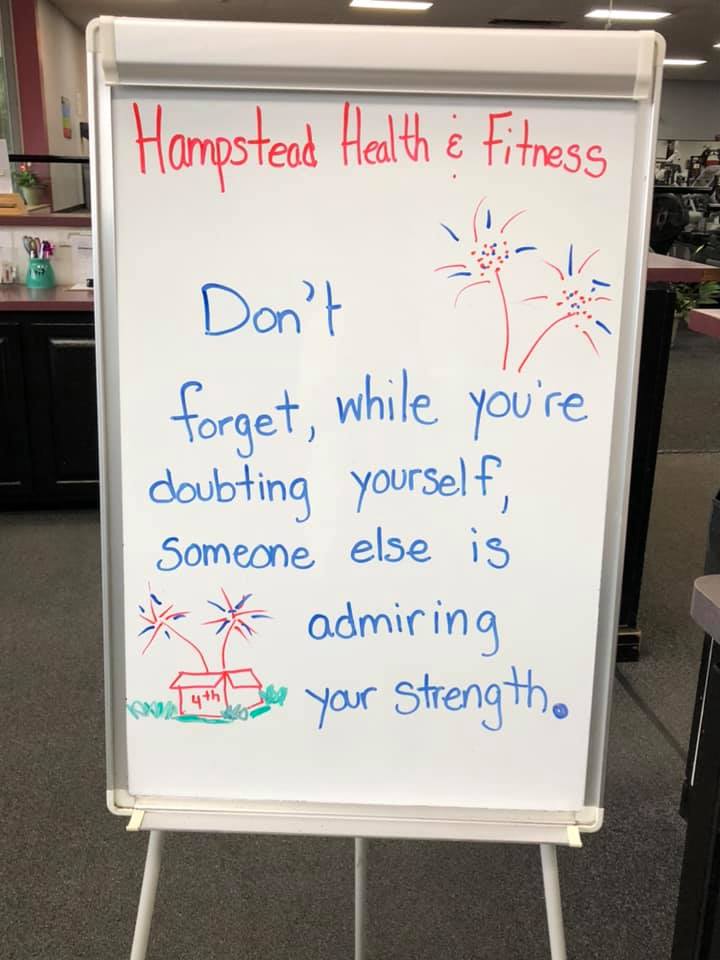 Hampstead Health & Fitness
Don't
forget, while you're
doubting yourself,
someone else is
admiring
your strength.
4th